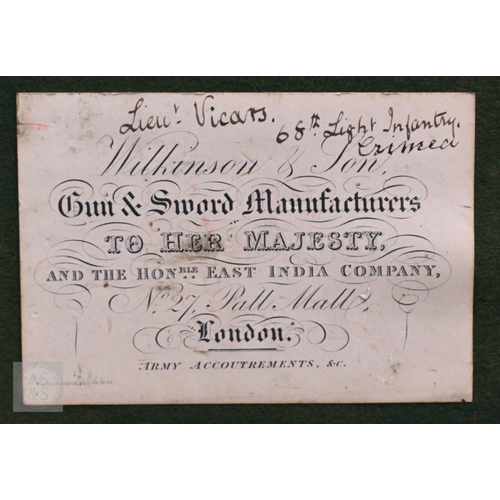 Lieut. Vicars.
68th Light Infantry.
Crimea
Wilkinson & Son,
Gun & Sword Manufacturers
TO HER MAJESTY,
AND THE HONBLE. EAST INDIA COMPANY,
No. 27, Pall Mall,
London.
ARMY ACCOUTREMENTS, &C.
&S